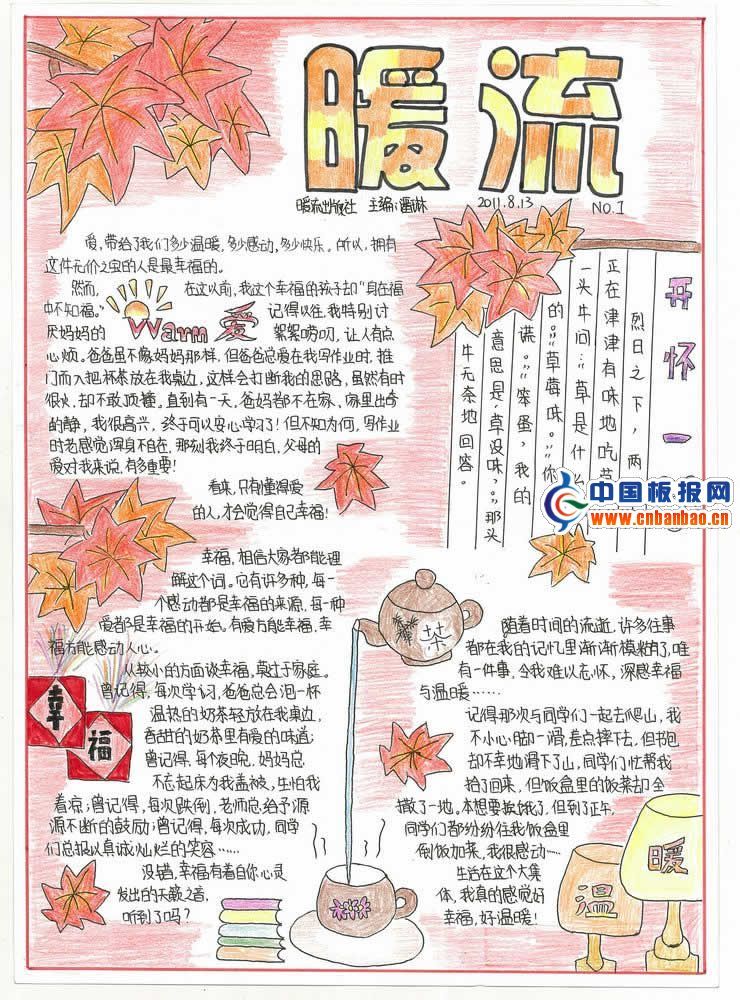 暖流
暖流出版社 主编:潘琳 2011.8.13 NO.1
爱,带给了我们多少温暖,多少感动,多少快乐。所以,拥有
这件无价之宝的人是最幸福的。
然而,在这以前,我这个幸福的孩子却“身在福
中不知福。”
Warm 爱
记得以往,我特别讨
厌妈妈的絮絮唠叨,让人有点
心烦。爸爸虽不像妈妈那样,但爸爸总爱在我写作业时,推
门而入把杯茶放在我桌边,这样会打断我的思路,虽然有时
很火,却不敢顶撞。直到有一天,爸妈都不在家,家里出奇
的静,我很高兴,终于可以安心学习了!但不知为何,写作业
时老感觉浑身不自在,那刻我终于明白,父母的
爱对我来说,有多重要!
看来,只有懂得爱
的人,才会觉得自己幸福!
开怀一
烈日之下,两
正在津津有味地吃草
一头牛问:“草是什么
的。”“草莓味。”“你
谎。”“笨蛋,我的
意思是,草没味。”那头
牛无奈地回答。
中国板报网
www.cnbanbao.cn
幸福,相信大家都能理
解这个词。它有许多种,每一
个感动都是幸福的来源,每一种
爱都是幸福的开始。有爱方能幸福,幸
福方能感动人心。
从较小的方面谈幸福,莫过于家庭。
曾记得,每次学习,爸爸总会泡一杯
温热的奶茶轻放在我桌边,
香甜的奶茶里有爱的味道;
曾记得,每个夜晚,妈妈总
不忘起床为我盖被,生怕我
着凉;曾记得,每次跌倒,老师总给予源
源不断的鼓励;曾记得,每次成功,同学
们总报以真诚灿烂的笑容……
没错,幸福有着自你心灵
发出的天籁之音,
听到了吗?
幸
福
茶
随着时间的流逝,许多往事
都在我的记忆里渐渐模糊了,唯
有一件事,令我难以忘怀,深感幸福
与温暖……
记得那次与同学们一起去爬山,我
不小心脚一滑,差点摔下去,但书包
却不幸地滑下了山,同学们忙帮我
拾了回来,但饭盒里的饭菜却全
撒了一地。本想要挨饿了,但到了正午,
同学们都纷纷往我饭盒里
倒饭加菜,我很感动……
生活在这个大集
体,我真的感觉好
幸福,好温暖!
温
暖